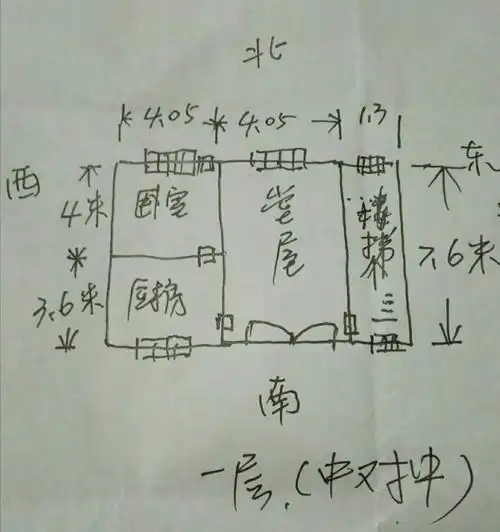 北
4.05 4.05 1.3
西 东
4米 卧室 堂屋 楼梯
7.6米
3.6米 厨房
南
一层.(中对中)